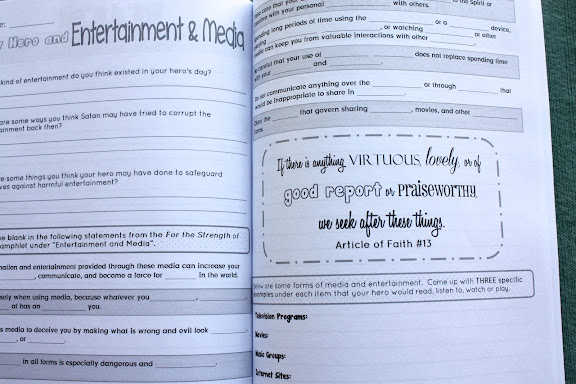 Hero and Entertainment & Media
kind of entertainment do you think existed in your hero's day?
are some ways you think Satan may have tried to corrupt the
ainment back then?
are some things you think your hero may have done to safeguard
ves against harmful entertainment?
he blank in the following statements from the For the Strength of
amphlet under "Entertainment and Media".
mation and entertainment provided through these media can increase your
, communicate, and become a force for in the world.
sely when using media, because whatever you
at has an you.
s media to deceive you by making what is wrong and evil look
, or .
in all forms is especially dangerous and
Spirit or
with your personal with others.
pending long periods of time using the or a device,
, or watching or other
media can keep you from valuable interactions with other
careful that your use of does not replace spending time
with your and
not communicate anything over the or through that
would be inappropriate to share in
Obey the that govern sharing , movies, and other
If there is anything VIRTUOUS, lovely, or of
good report or PRAISEWORTHY,
we seek after these things.
Article of Faith #13
Below are some forms of media and entertainment. Come up with THREE specific
examples under each item that your hero would read, listen to, watch or play.
Television Programs:
Movies:
Music Groups:
Internet Sites: